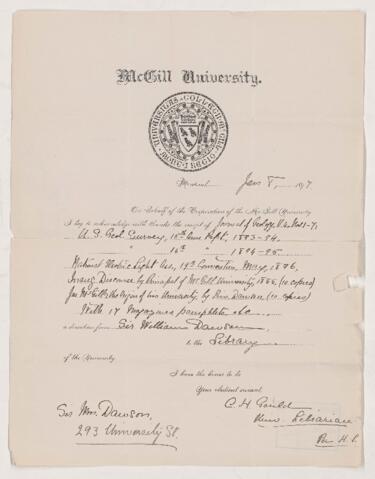 McGill University.
Montreal, Jan 8, 1897
On Behalf of the Corporation of the McGill University
I beg to acknowledge with thanks the receipt of Journal of Geology, V. 4, Nos 1-7,
U. S. Geol Survey, 15th Ann Rept, 1893-94,
" 16th " 1894-95
National Electric Light Ass, 19th Convention, May, 1896,
Discourse by Principal of McGill University, 1888, (10 copies)
Jas McGill & the origin of his University, by Dawson (10 copies)
With 17 magazines pamphlets &c
a donation from Sir William Dawson
to the Library
of the University
I have the honor to be
Your obedient servant
C. H Gould
Univ. Librarian
Per H.
Sir Wm. Dawson,
293 University St.